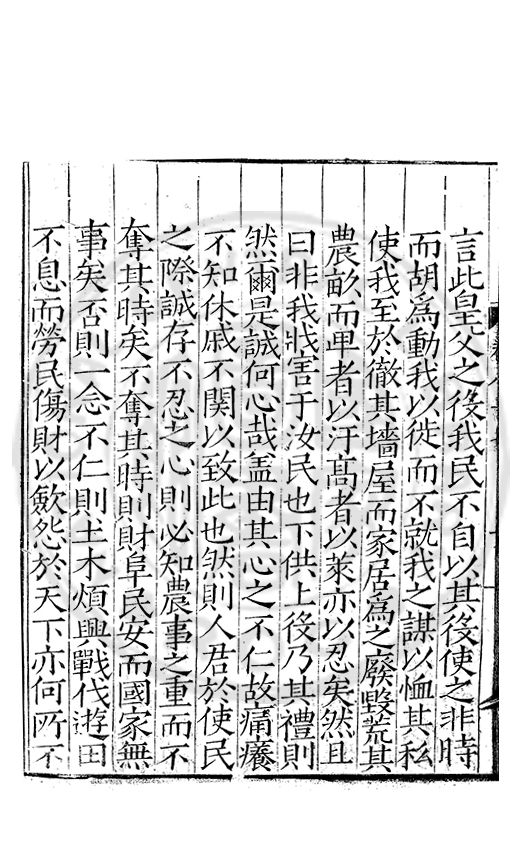 言此皇父之役我民不自以其役使之非時
而胡為動我以徙而不就我之謀以恤其私
使我至於徹其墻屋而家居為之廢毀荒其
農畝而卑者以汙高者以萊亦以忍矣然且
曰非我戕害于汝民也下供上役乃其禮則
然爾是誠何心哉盖由其心之不仁故痛癢
不知休戚不關以致此也然則人君於使民
之際誠存不忍之心則必知農事之重而不
奪其時矣不奪其時則財阜民安而國家無
事矣否則一念不仁則土木煩興戰伐遊田
不息而勞民傷財以斂怨於天下亦何所不